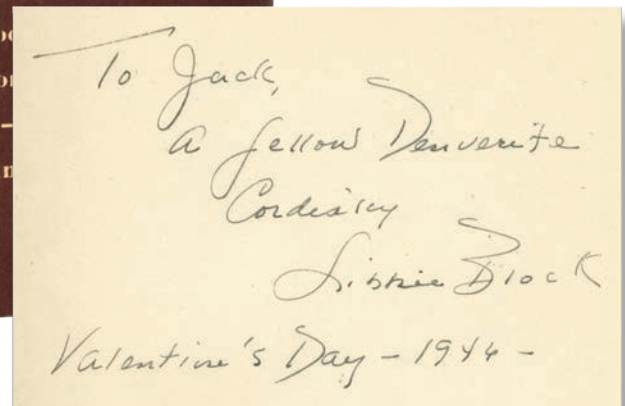 To Jack,
a fellow Denverite
Cordially
Libbie Block
Valentine's Day - 1946 -